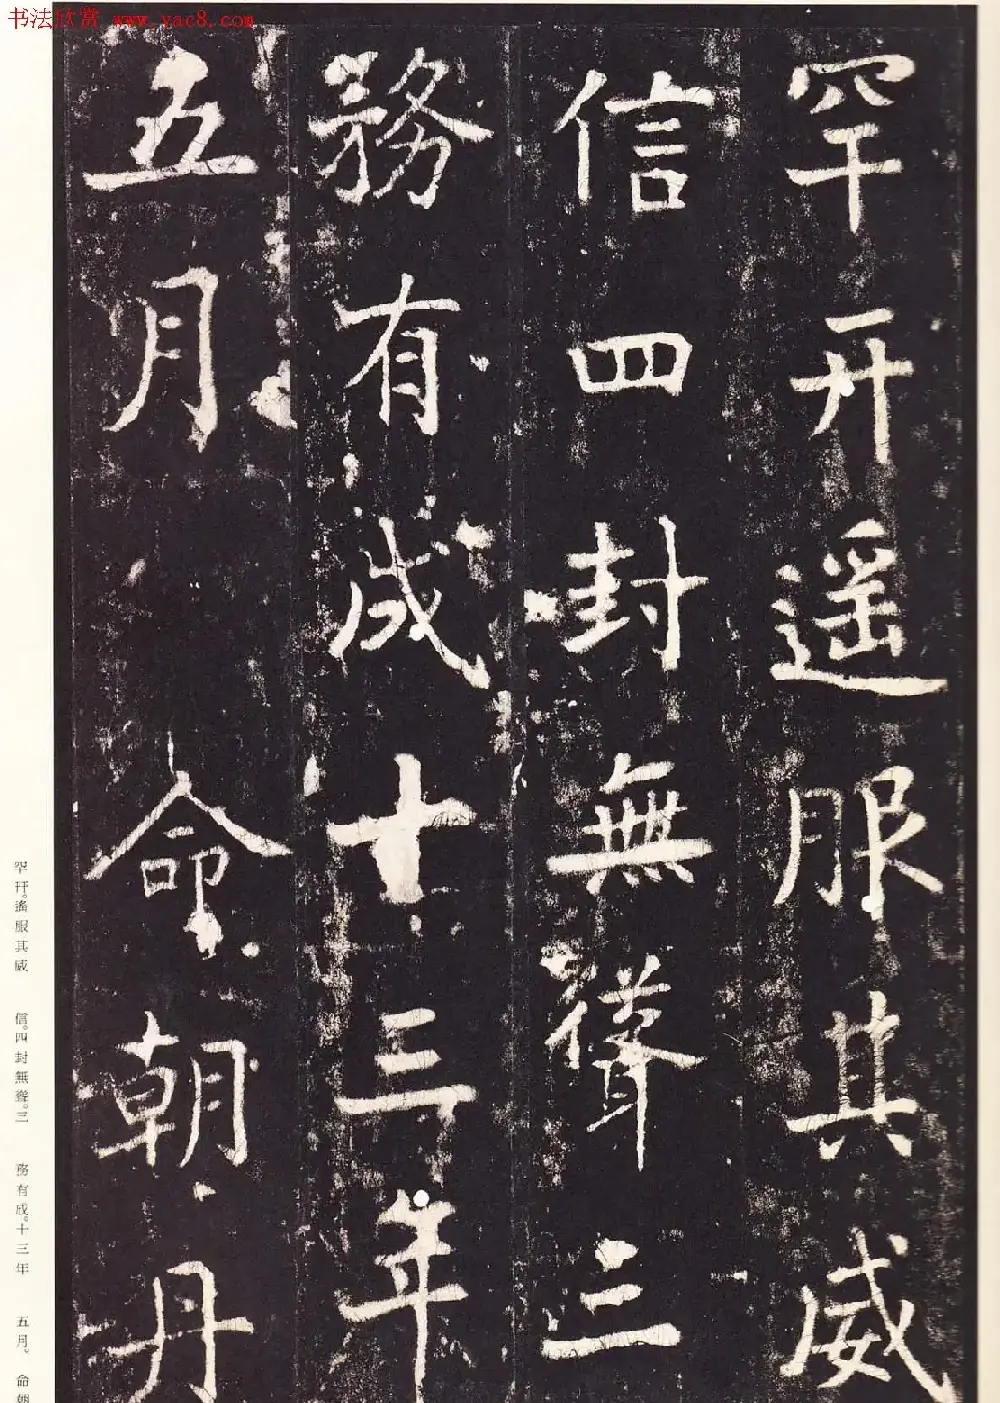 书法欣赏 www.yac8.com
罕开遥服其威
信四封無聲三
務有成十三年
五月命朝丹
罕幵。遙服其威 信。四封無聲。三 務有成。十三年 五月。命朝